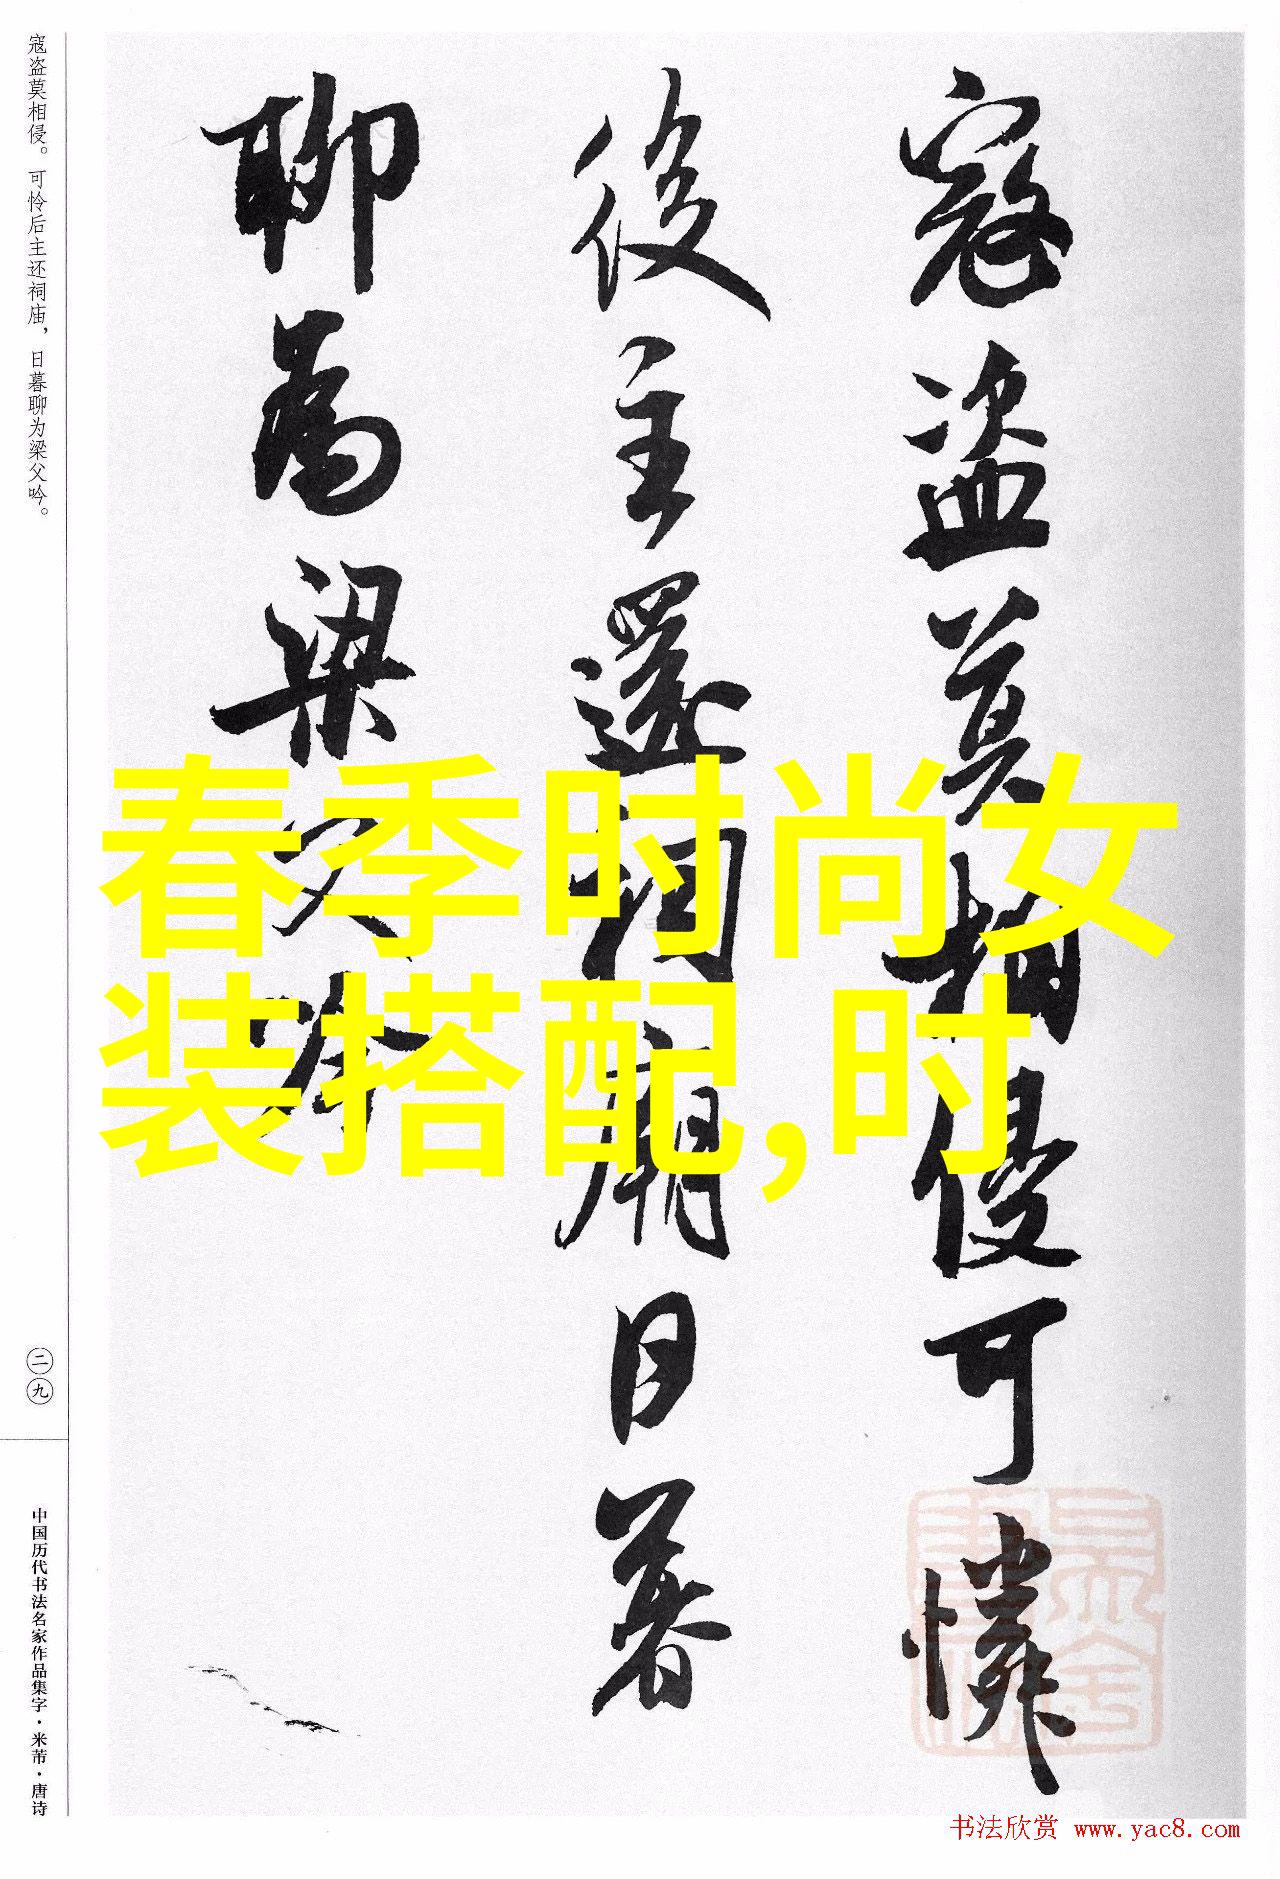 寇盗莫相侵可憐
後主還祠廟日暮
聊為梁父吟
春季时尚女
装搭配,时
寇盗莫相侵。可怜后主还祠庙，日暮聊为梁父吟。
二九
中国历代书法名家作品集字·米芾·唐诗
书法欣赏 www.yac8.com